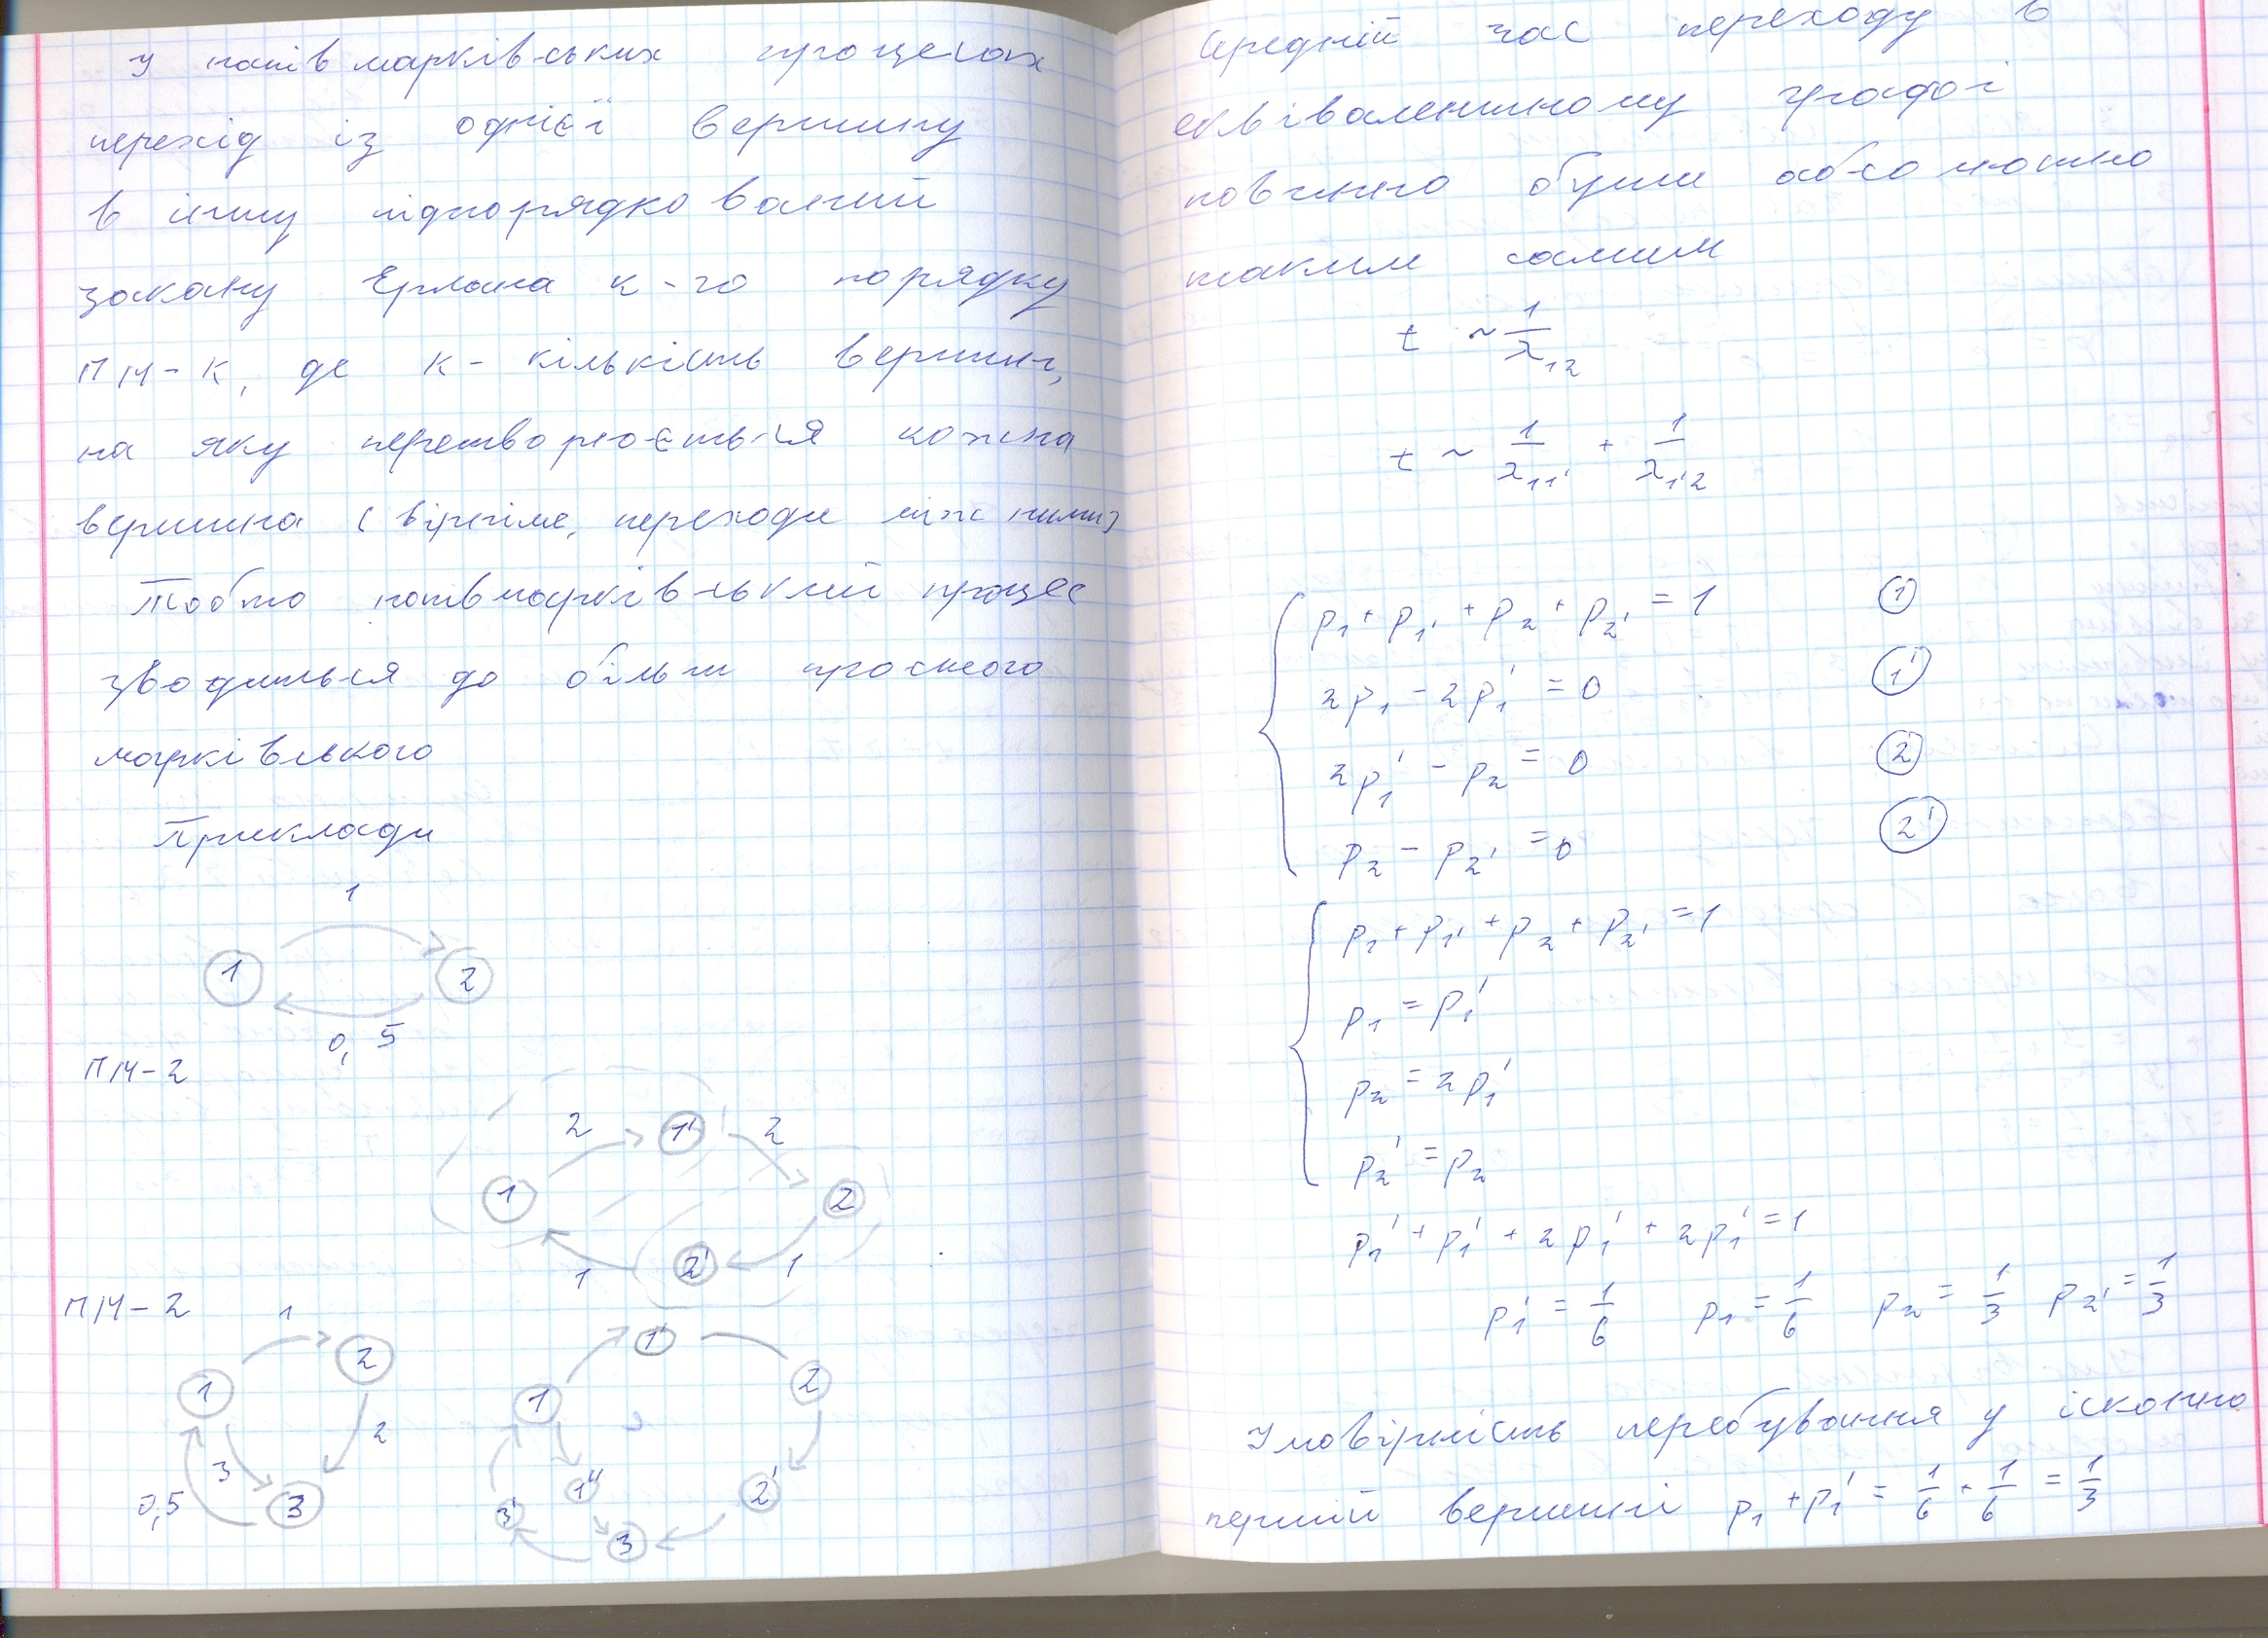 У напівмарківських процесах
перехід із однієї вершину
в іншу підпорядкований
закону Ерланга к-го порядку
ПМ-К, де к - кількість вершин,
на яку перетворюється кожна
вершина (вірніше, переходи між ними)
Тобто напівмарківський процес
зводиться до більш простого
марківського
Приклади
1
1 2
0,5
ПМ-2
2 1' 2
1 2
1 2' 1
ПМ-2
1
1 2 3
2
3
0,5
1 1' 2
1'' 2'
3' 3
Середній час переходу в
еквівалентному графі
повинно бути абсолютно
таким самим
t ~ 1/λ₁₂
t ~ 1/λ₁₁' + 1/λ₁'₂
p₁ + p₁' + p₂ + p₂' = 1 ①
2p₁ - 2p₁' = 0 1'
2p₁' - p₂ = 0 ②
p₂ - p₂' = 0 2'
p₁ + p₁' + p₂ + p₂' = 1
p₁ = p₁'
p₂ = 2p₁'
p₂' = p₂
p₁' + p₁' + 2p₁' + 2p₁' = 1
p₁' = 1/6 p₁ = 1/6 p₂ = 1/3 p₂' = 1/3
Умовірність перебування у ісконно
першій вершині p₁ + p₁' = 1/6 + 1/6 = 1/3